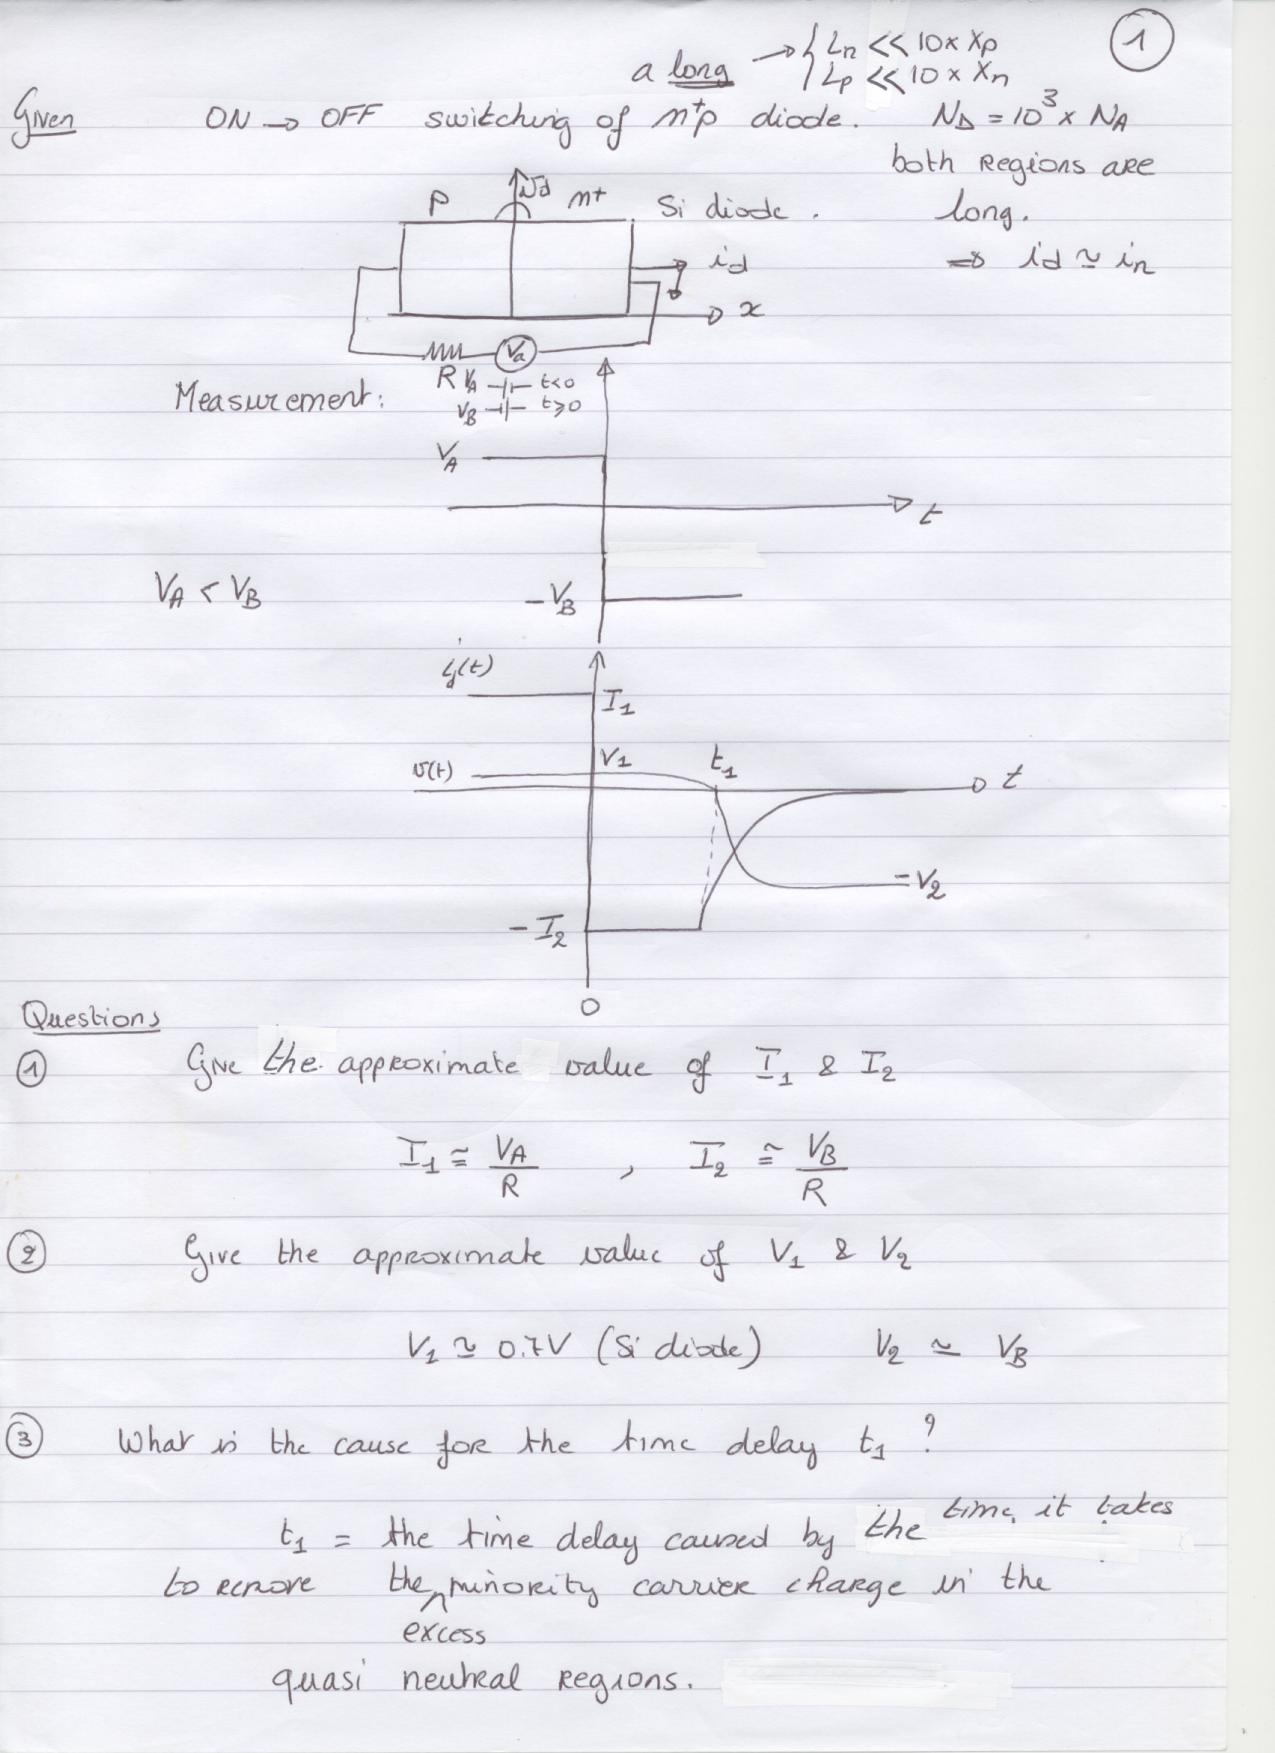 1
a long → { Ln << 10x Xp
Lp << 10 x Xn
Given ON → OFF switching of n+p diode. ND = 10^3 x NA
both regions are
P n+ Si diode. long.
id ⇒ id ≃ in
x
Va
R VA t<0
Measurement: VB t⩾0
VA
t
VA < VB -VB
I1
V1 t1
v(t) t
-V2
-I2
0
Questions
1 Give the approximate value of I1 & I2
I1 ≅ VA/R , I2 ≅ VB/R
2 Give the approximate value of V1 & V2
V1 ≃ 0.7V (Si diode) V2 ≃ VB
3 What is the cause for the time delay t1 ?
t1 = the time delay caused by the time it takes
to remove the minority carrier charge in the
excess
quasi neutral regions.